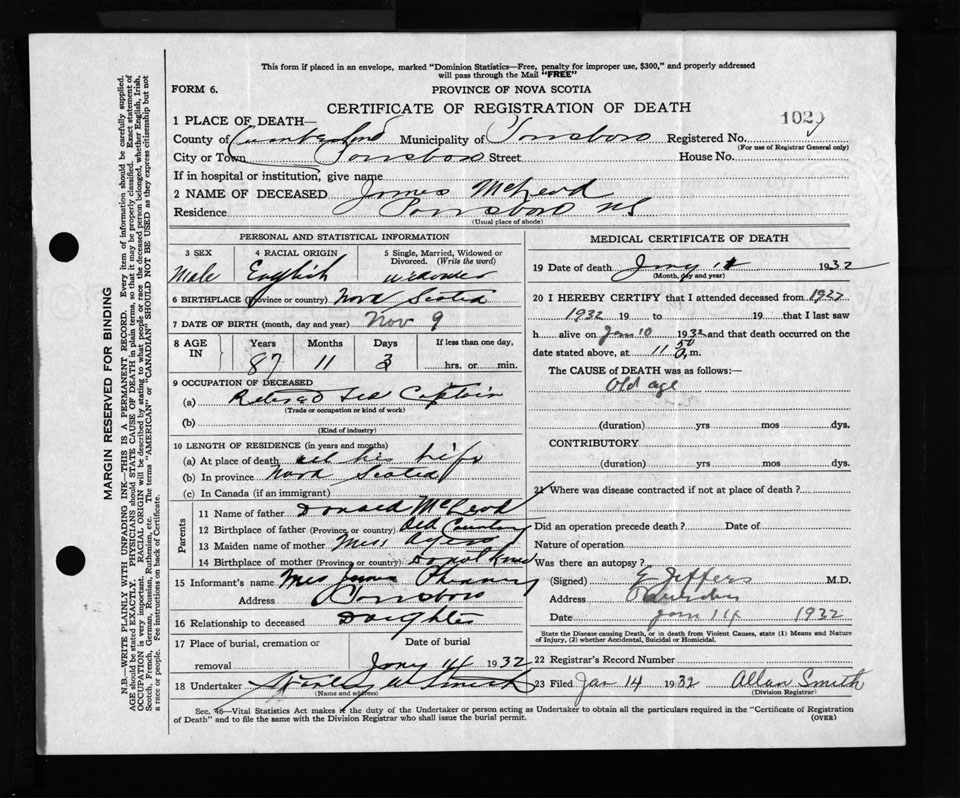 This form if placed in an envelope, marked "Dominion Statistics—Free, penalty for improper use, $300," and properly addressed
will pass through the Mail "FREE"
FORM 6. PROVINCE OF NOVA SCOTIA
CERTIFICATE OF REGISTRATION OF DEATH
1 PLACE OF DEATH— 102
County of Cumberland Municipality of Parrsboro Registered No.
(For use of Registrar General only)
City or Town Parrsboro Street House No.
If in hospital or institution, give name
2 NAME OF DECEASED James McLeod
Residence Parrsboro NS
(Usual place of abode)
PERSONAL AND STATISTICAL INFORMATION
3 SEX 4 RACIAL ORIGIN 5 Single, Married, Widowed or Divorced. (Write the word)
Male English widower
6 BIRTHPLACE (Province or country) Nova Scotia
7 DATE OF BIRTH (month, day and year) Nov 9
8 AGE IN Years Months Days If less than one day,
87 11 3 hrs. or min.
9 OCCUPATION OF DECEASED
(a) Retired Sea Captain
(Trade or occupation or kind of work)
(b)
(Kind of industry)
10 LENGTH OF RESIDENCE (in years and months)
(a) At place of death all his life
(b) In province Nova Scotia
(c) In Canada (if an immigrant)
Parents
11 Name of father Donald McLeod
12 Birthplace of father (Province or country) Old Country
13 Maiden name of mother Miss
14 Birthplace of mother (Province or country) Do not know
15 Informant's name Mrs
Address Parrsboro
16 Relationship to deceased Daughter
17 Place of burial, cremation or Date of burial
removal Jany 14 1932
18 Undertaker Smith
(Name and address)
MEDICAL CERTIFICATE OF DEATH
19 Date of death Jany 1932
(Month, day and year)
20 I HEREBY CERTIFY that I attended deceased from 1927
1932 19 to 19 that I last saw
h alive on Jan 10 1932 and that death occurred on
date stated above, at 11 50 m.
The CAUSE of DEATH was as follows:—
Old age
(duration) yrs mos dys.
CONTRIBUTORY
(duration) yrs mos dys.
21 Where was disease contracted if not at place of death?
Did an operation precede death? Date of
Nature of operation
Was there an autopsy?
(Signed) Jeffers M.D.
Address
Date Jan 14 1932
State the Disease causing Death, or in death from Violent Causes, state (1) Means and Nature
of Injury, (2) whether Accidental, Suicidal or Homicidal.
22 Registrar's Record Number
23 Filed Jan 14 1932 Allan Smith
(Division Registrar)
Sec. 46—Vital Statistics Act makes it the duty of the Undertaker or person acting as Undertaker to obtain all the particulars required in the "Certificate of Registration
of Death" and to file the same with the Division Registrar who shall issue the burial permit. (OVER)
MARGIN RESERVED FOR BINDING
N.B.—WRITE PLAINLY WITH UNFADING INK—THIS IS A PERMANENT RECORD. Every item of information should be carefully supplied.
AGE should be stated EXACTLY. PHYSICIANS should STATE CAUSE OF DEATH in plain terms, so that it may be properly classified. Exact statement of
OCCUPATION is very important. RACIAL ORIGIN will be described by stating to what people or race the deceased person belonged, whether English, Irish,
Scotch, French, German, Russian, Ruthenian, etc. The terms "AMERICAN" or "CANADIAN" SHOULD NOT BE USED as they express citizenship but not
a race or people. See instructions on back of Certificate.